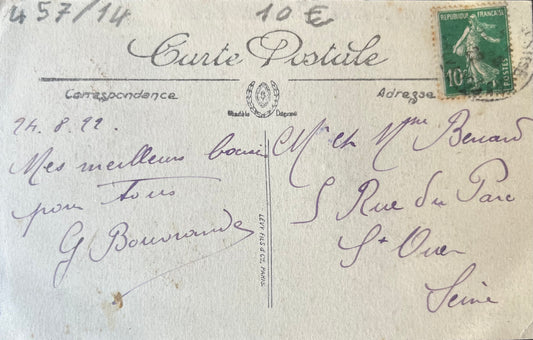 457/14
10 €
Carte Postale
RÉPUBLIQUE FRANÇAISE
10c
POSTES
Correspondance
Adresse
Modèle Déposé
24.8.22.
Mes meilleurs
pour Tous
G
LÉVY FILS & Cie, PARIS
Mr et Mme Benard
5 Rue du Parc
St Ouen
Seine